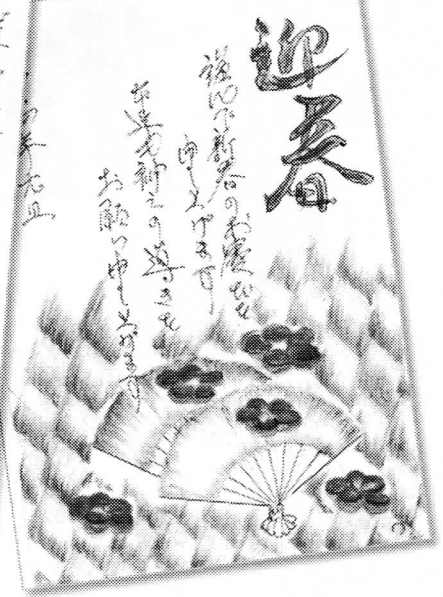 迎春
謹んで新春のお慶びを
申し上げます
本年も神之の導きを
お願い申し上げます
元旦